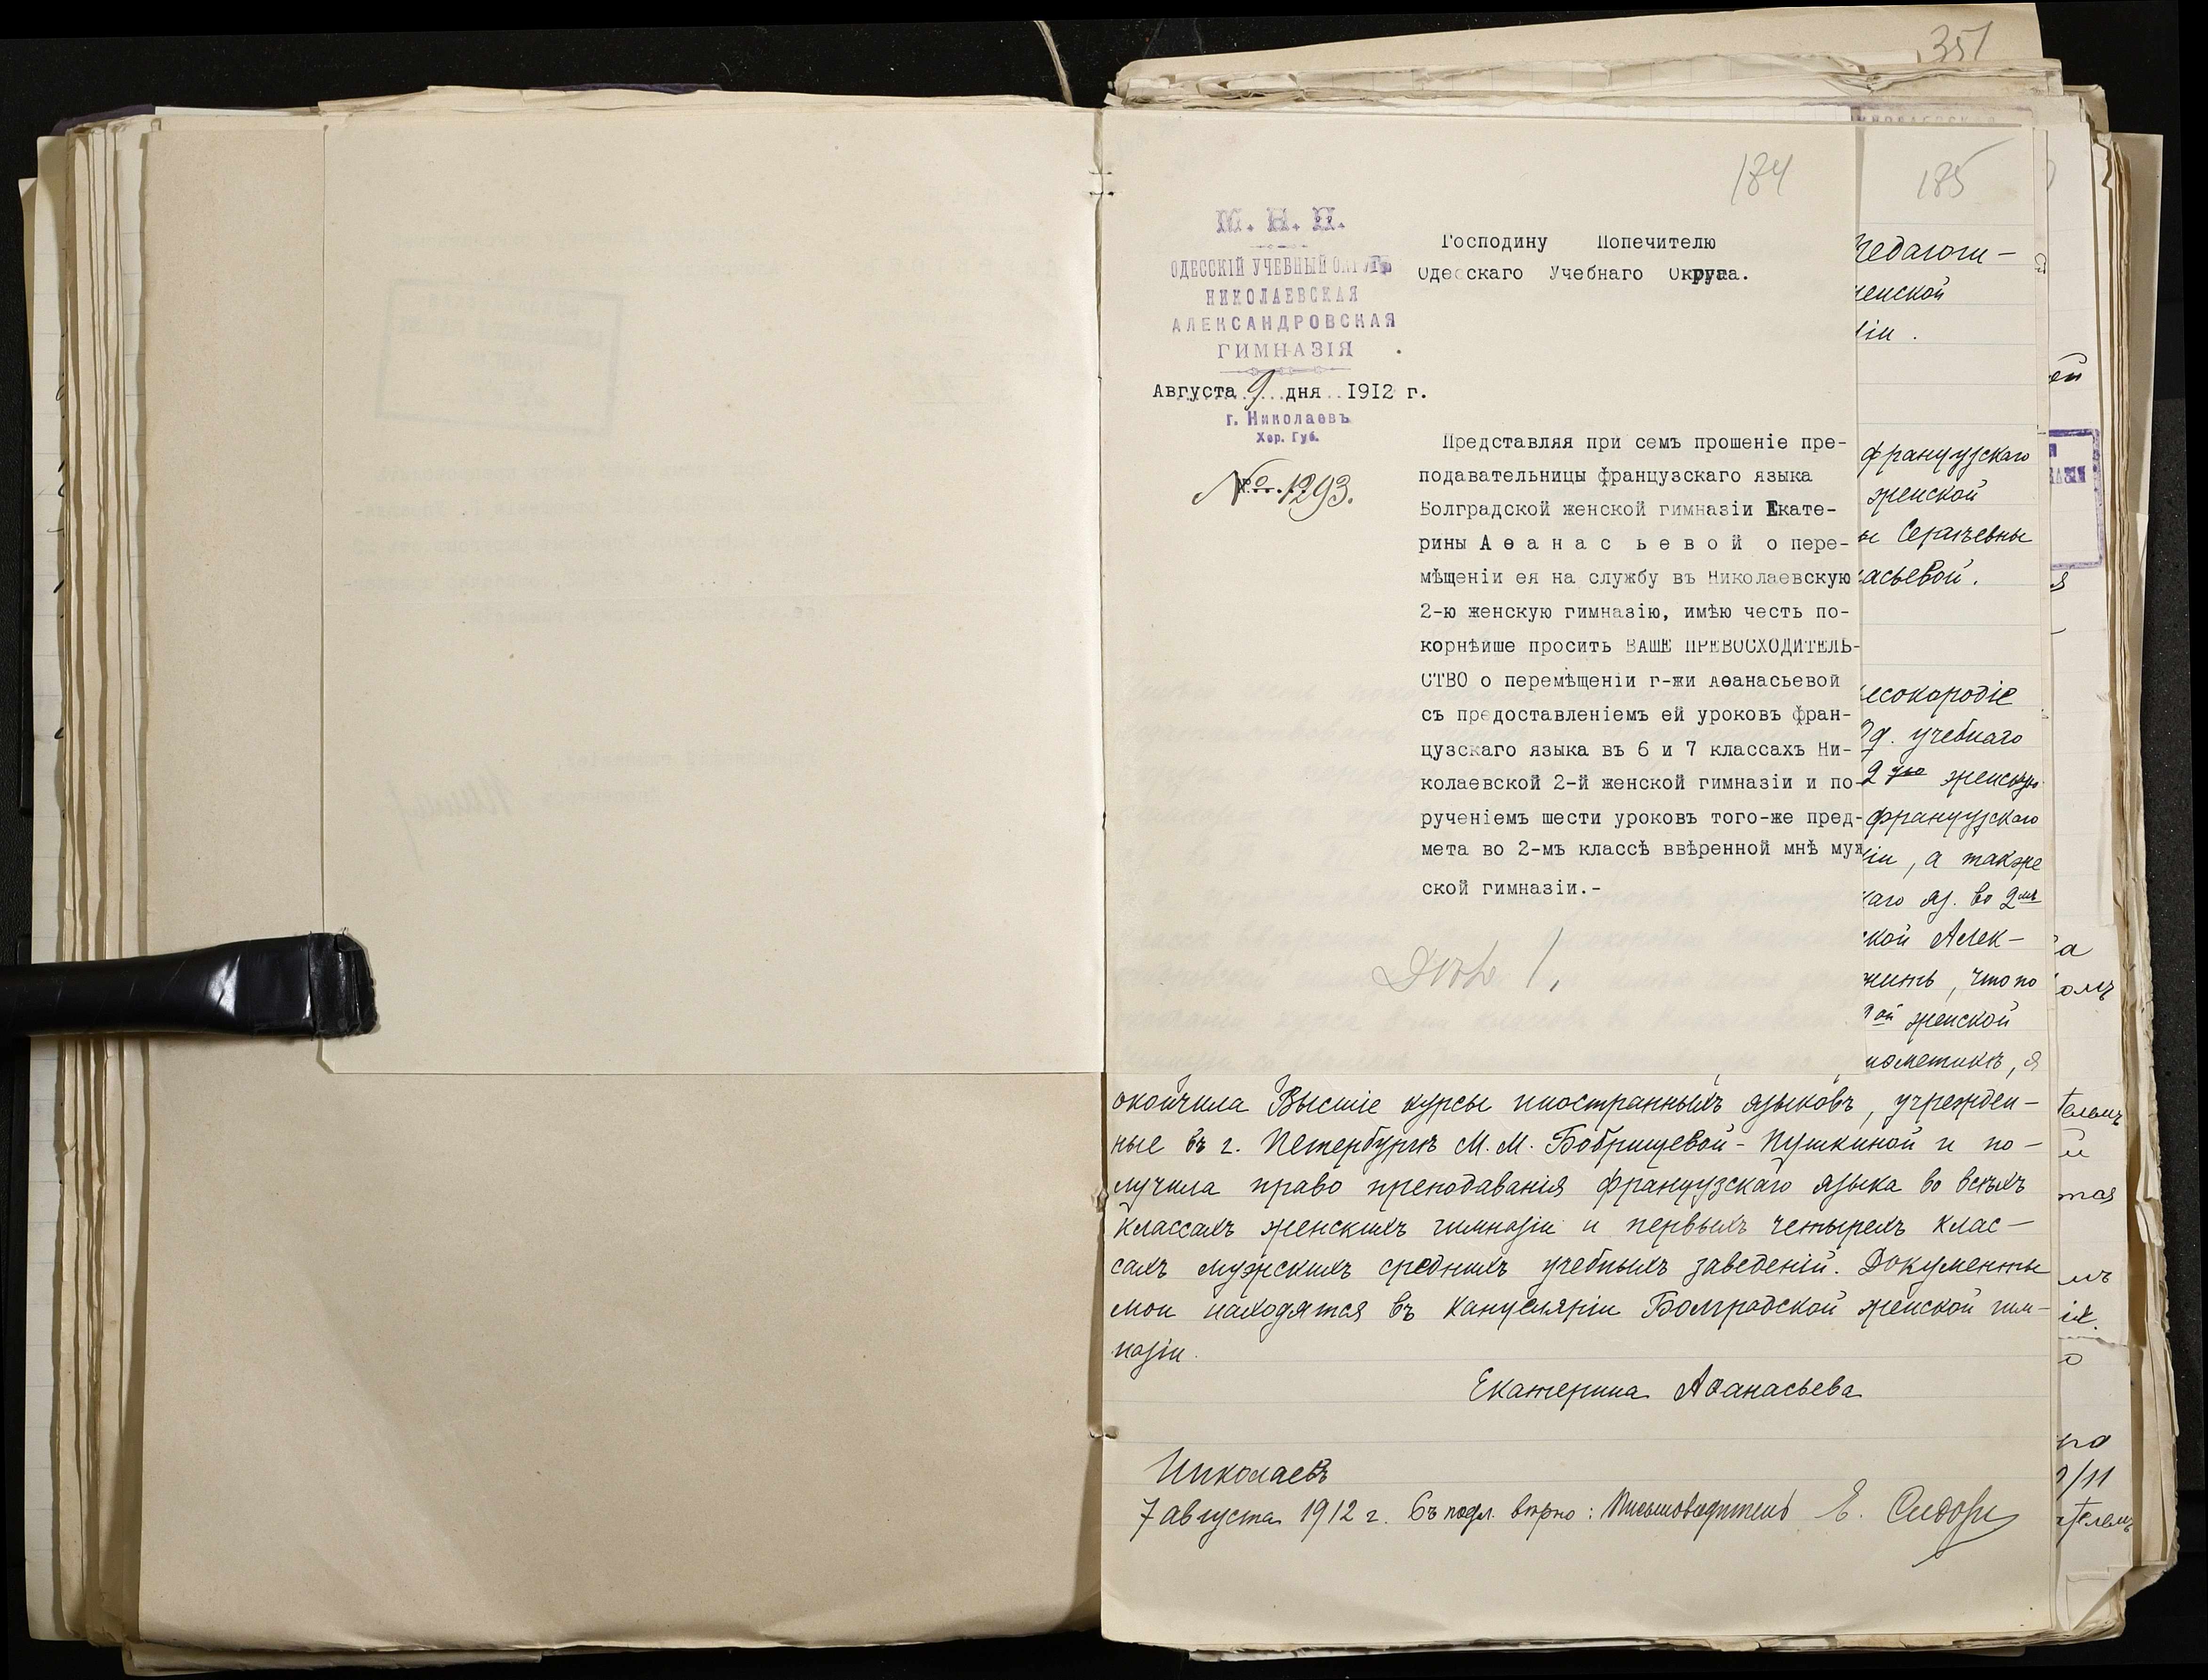 351
184
185
М. Н. П.
ОДЕССКІЙ УЧЕБНЫЙ ОКРУГЪ
НИКОЛАЕВСКАЯ
АЛЕКСАНДРОВСКАЯ
ГИМНАЗІЯ
Августа 9 дня 1912 г.
г. Николаевъ
Хер. Губ.
№ 1293.
Господину Попечителю
Одесскаго Учебнаго Округа.
Представляя при семъ прошеніе пре-
подавательницы французскаго языка
Болградской женской гимназіи Екате-
рины Аѳанасьевой о пере-
мѣщеніи ея на службу въ Николаевскую
2-ю женскую гимназію, имѣю честь по-
корнѣйше просить ВАШЕ ПРЕВОСХОДИТЕЛЬ-
СТВО о перемѣщеніи г-жи Аѳанасьевой
съ предоставленіемъ ей уроковъ фран-
цузскаго языка въ 6 и 7 классахъ Ни-
колаевской 2-й женской гимназіи и по-
рученіемъ шести уроковъ того-же пред-
мета во 2-мъ классѣ ввѣренной мнѣ муж
ской гимназіи.-
педагоги-
женской
іи.
французскаго
женской
ы Сергѣевны
асьевой.
ысокородіе
3 д. учебнаго
2ую женскую
французскаго
іи, а также
каго яз. во 2мъ
ской Алек-
жить, что по
ой женской
нометикѣ, я
окончила Высшіе курсы иностранныхъ языковъ, учрежден-
ные въ г. Петербургѣ М. М. Бобрищевой-Пушкиной и по-
лучила право преподаванія французскаго языка во всѣхъ
классахъ женскихъ гимназіи и первыхъ четырехъ клас-
сахъ мужскихъ среднихъ учебныхъ заведеній. Документы
мои находятся въ канцеляріи Болградской женской гим-
назіи.
Екатерина Аѳанасьева
Николаевъ
7 августа 1912 г. Съ подл. вѣрно: Письмоводитель Е. Сидор